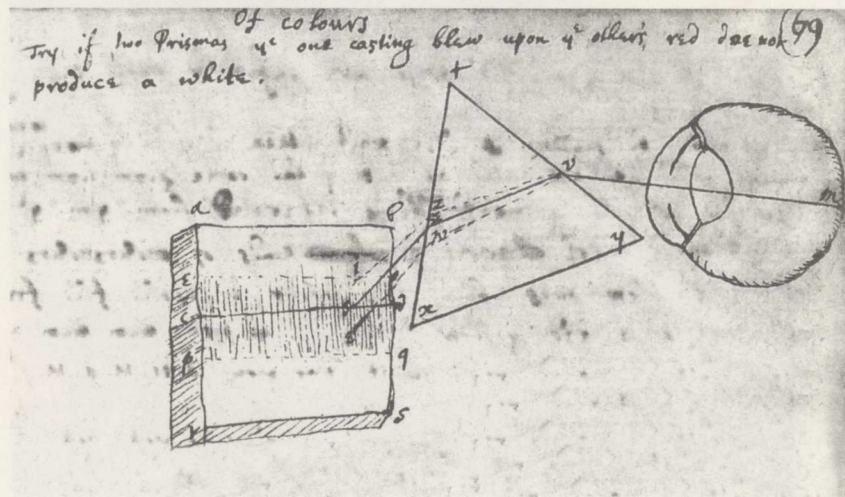 Of colours
Try if two Prismas yᵉ one casting blew upon yᵉ other's red doe not (69
produce a white.
t
v
m
y
x
z
a
e
q
s